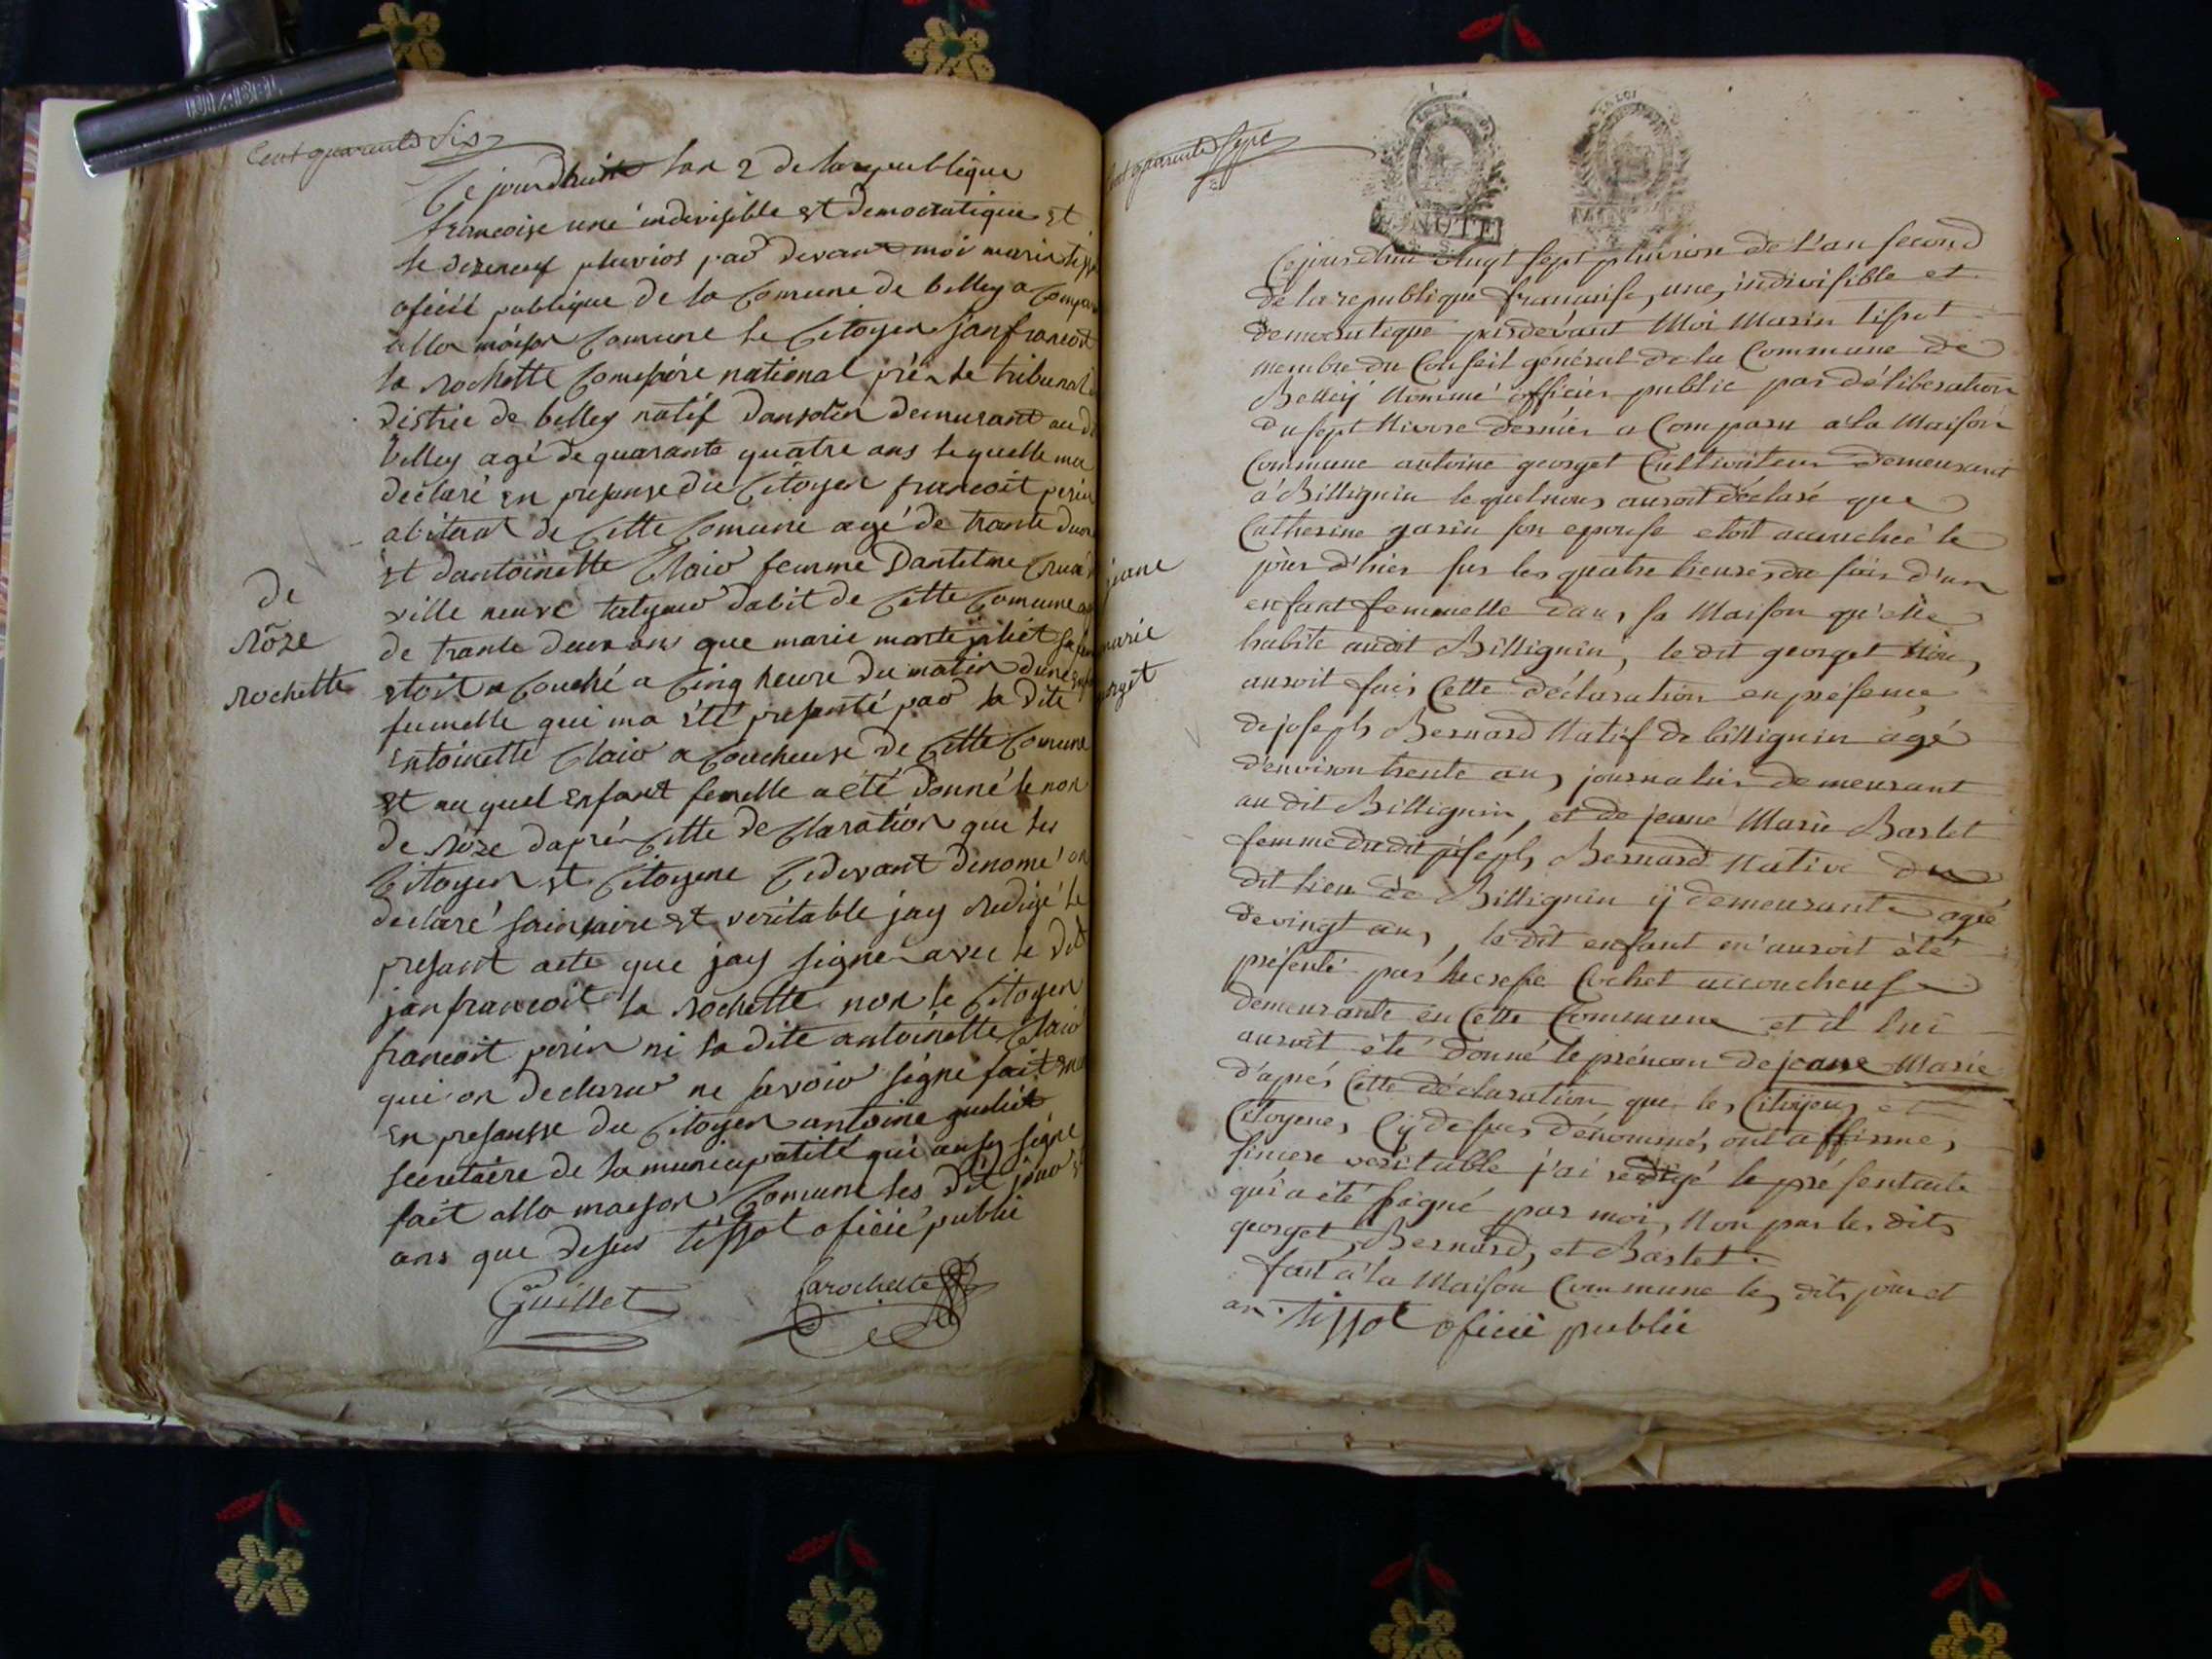 Cent quarante Six
Ce jourdhuit lan 2 de la republique
francoise une indivisible et democratique et
le dizeneuf pluvios par devant moi marin tiss
oficié publique de la Comune de belley a Compar
alla maison Comune le Citoyen Janfrancoit
la Rochette Comisére national prés le tribunal
distric de belley natif demurant au d
belley agé de quarante quatre ans lequelle ma
declaré en presanse du Citoyen francoit perin
abitant de Cette Comune agé de trante deux
et dantoinette Claio femme Dantelme
ville neuve dabit de Cette Comune
de trante deux ans que marie
etoit a Couché a Cinq heure du matin dune enfan
fumelle qui ma été presanté par la dite
entoinette Claio a Coucheuse de Cette Comune
et au quel enfant femelle a été donné le non
de Rôze daprés Cette de Claration que les
Citoyen et Citoyene Cidevant denomé on
declaré et veritable jay Redigé le
presant acte que jay signé avec le dit
janfrancoit la Rochette non le Citoyen
francoit perin ni la dite antoinette Claio
qui on declarer ne savoir signe fait
En presansse du Citoyen antoine guliét
secretaire de la municipalité qui ausy signe
fait alla maison Comune les dit jour
ans que desus tissot oficié public
Guillet
Larochette
de
Rôze
Rochette
Cent quarante Sept
LA LOI
MINUTE
Cejourdhui vingt sept pluviose de l'an second
de la republique francaise, une, indivisible et
democratique pardevant Moi Marin tissot
membre du Conseil general de la Commune de
Belley Nommé officier public par déliberation
du sept Nivose dernier a Comparu a la Maison
Commune antoine georget Cultivateur demeurant
à Billignin lequel nous auroit déclaré que
Catherine garin son epouse etoit accouchée le
jour d'hier sur les quatre heures du soir d'un
enfant femmelle dans sa Maison qu'elle
habite audit Billignin, le dit georget
auroit fais Cette déclaration en presence
de joseph Bernard Natif de billignin agé
d'environ trente ans journalier demeurant
au dit Billignin, et de jeane Marie Bartet
femme du dit joseph Bernard Native du
dit lieu de Billignin ij demeurante agée
de vingt ans, le dit enfant m'auroit été
présenté par Cochet accoucheuse
demeurante en Cette Commune et il lui
auroit été donné le prénom de jeane Marie
d'aprés Cette déclaration que les Citoyens et
Citoyenes Cy dessus dénommés ont affirmé,
sincere veritable j'ai redigé le présent acte
qui a été signé par moi, Non par les dits
georget, Bernard, et Bartet.
fait à la Maison Commune les dits jour et
an. tissot oficié public
jeane
marie
orget